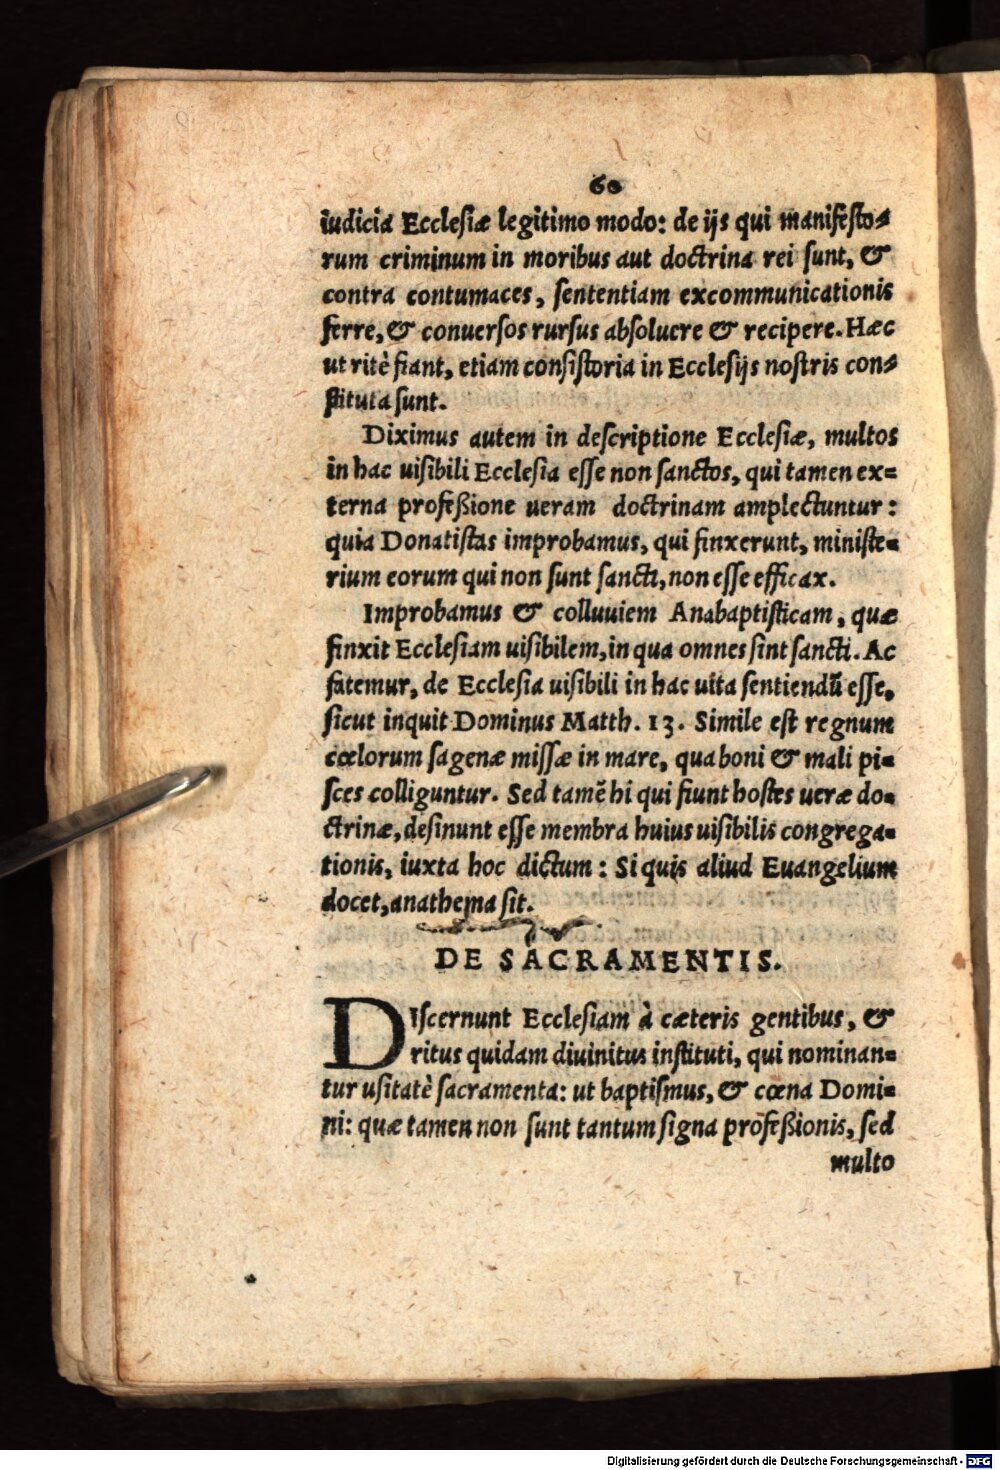 60
iudicia Ecclesiæ legitimo modo: de ijs qui manifesto-
rum criminum in moribus aut doctrina rei sunt, &
contra contumaces, sententiam excommunicationis
ferre, & conuersos rursus absoluere & recipere. Hæc
ut ritè fiant, etiam consistoria in Ecclesijs nostris con-
stituta sunt.
Diximus autem in descriptione Ecclesiæ, multos
in hac uisibili Ecclesia esse non sanctos, qui tamen ex-
terna profeßione ueram doctrinam amplectuntur:
quia Donatistas improbamus, qui finxerunt, ministe-
rium eorum qui non sunt sancti, non esse efficax.
Improbamus & colluuiem Anabaptisticam, quæ
finxit Ecclesiam uisibilem, in qua omnes sint sancti. Ac
fatemur, de Ecclesia uisibili in hac uita sentiendū esse,
sicut inquit Dominus Matth. 13. Simile est regnum
cœlorum sagenæ missæ in mare, qua boni & mali pi-
sces colliguntur. Sed tamē hi qui fiunt hostes ueræ do-
ctrinæ, desinunt esse membra huius uisibilis congrega-
tionis, iuxta hoc dictum: Si quis aliud Euangelium
docet, anathema sit.
DE SACRAMENTIS.
DIscernunt Ecclesiam à cæteris gentibus, &
ritus quidam diuinitus instituti, qui nominan-
tur usitatè sacramenta: ut baptismus, & cœna Domi-
ni: quæ tamen non sunt tantum signa profeßionis, sed
multo
Digitalisierung gefördert durch die Deutsche Forschungsgemeinschaft - DFG